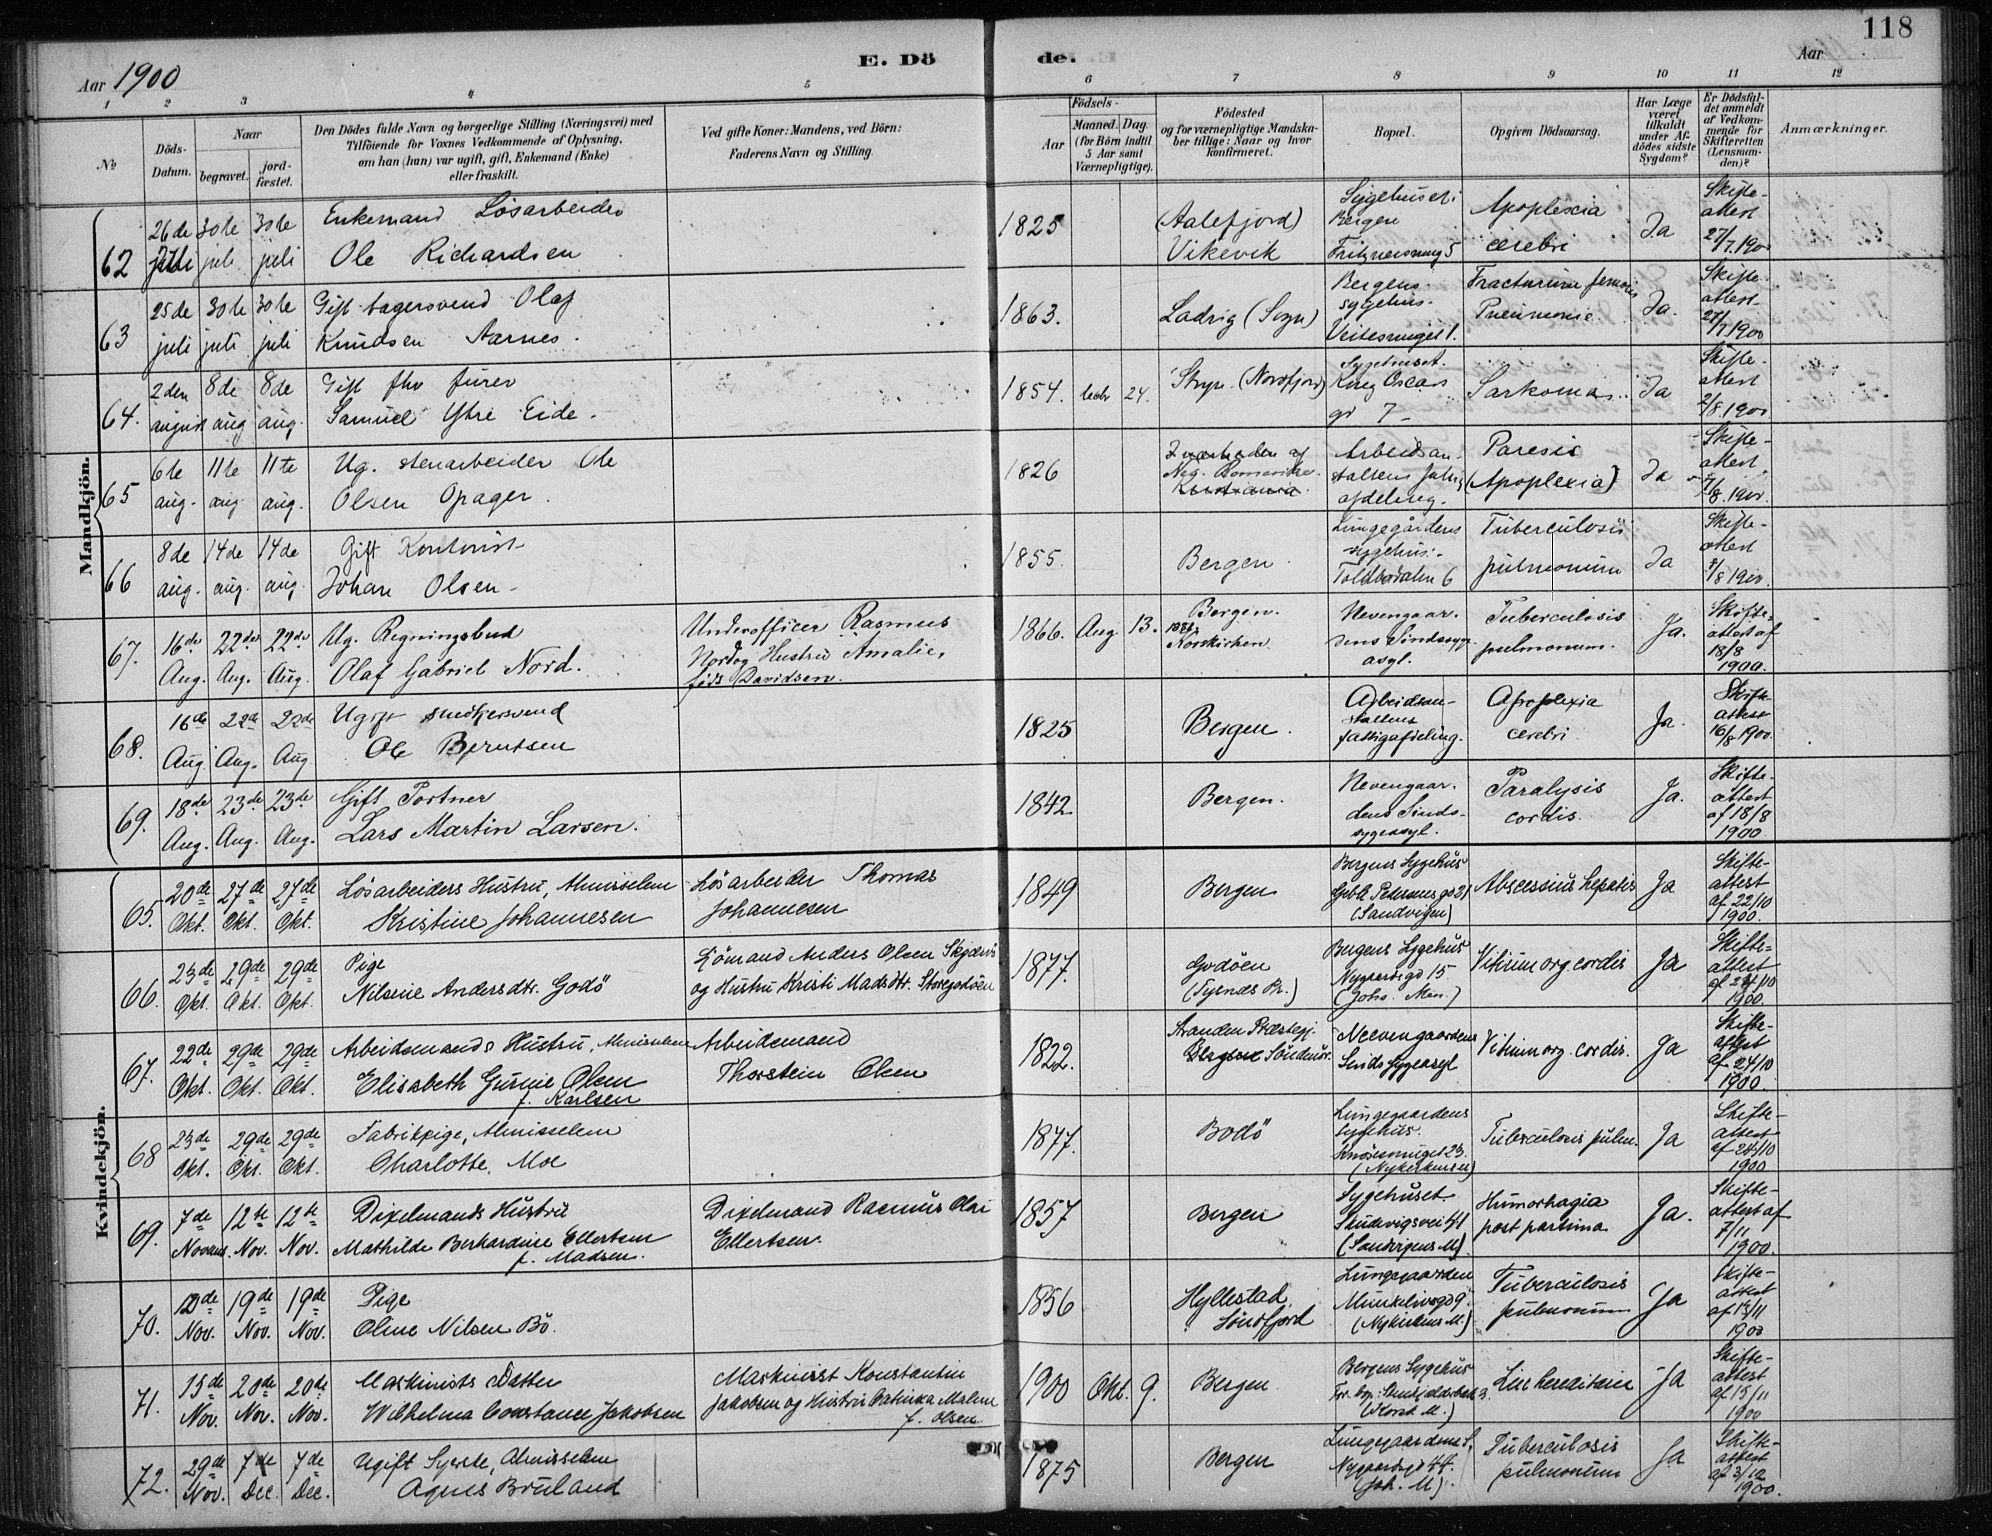 118
E. Dö de.
Aar 1900
Aar
1 2 3 4 5 6 7 8 9 10 11 12
No
Döds-Datum.
Naar
begravet.
jord-fæstet.
Den Dödes fulde Navn og borgerlige Stilling (Næringsvei) med
Tilföiende for Voxnes Vedkommende af Oplysning,
om han (hun) var ugift, gift, Enkemand (Enke)
eller fraskilt.
Ved gifte Koner: Mandens, ved Börn:
Faderens Navn og Stilling.
Födsels-
Aar
Maaned. Dag.
(for Börn indtil
5 Aar samt
Værnepligtige).
Födested
og for værnepligtige Mandska-
ber tillige: Naar og hvor
konfirmeret.
Bopæl.
Opgiven Dödsaarsag.
Har Læge
været
tilkaldt
under Af-
dödes sidste
Sygdom?
Er Dödsfal-
det anmeldt
af Vedkom-
mende for
Skifteretten
(Lensman-
den)?
Anmærkninger.
Mandkjön.
62 26de juli 30te juli 30te juli
Enkemand Løsarbeider
Ole Richardsen
1825
(Aalefjord)
Vikevik
Sygehuset
Bergen
Apoplexia
cerebri
Ja
Skifte-
attest
27/7.1900
63 25de juli 30te juli 30te juli
Gift bagersvend Olaf
Knudsen Aarnes.
1863.
Ladvig (Sogn)
Bergens
sygehus.
Pneumonie
Ja.
Skifte-
attest
27/7 1900
64. 2den august 8de aug 8de aug.
Gift fhv furer
Samuel Ytre Eide.
1854. 24.
Stryn (Nordfjord)
Sygehuset.
Kong Oscars
gd 7
Sarkoma
Ja
Skifte-
attest
2/8.1900
65 6te aug. 11te aug 11te aug.
Ug. stenarbeider Ole
Olsen Opager.
1826
Nærheden af
Kristiania.
Arbeidsan-
staltens
afdeling.
Paresis
(Apoplexia)
Ja
Skifte-
attest
7/8.1900.
66 8de aug. 14de aug. 14de aug.
Gift Kontorist
Johan Olsen
1855.
Bergen.
Lungegårdens
sygehus.
Toldbodalm 6
Tuberculosis
pulmonum
Ja
Skifte-
attest
8/8 1900.
67. 16de Aug. 22de Aug. 22de Aug.
Ug. Regningsbud
Olaf Gabriel Nord.
Underofficer Rasmus
Nord og Hustru Amalie,
føds Davidsen.
1866. Aug. 13.
Bergen.
Korskirken
Nevengaar-
dens Sindssyg
asyl.
Tuberculosis
pulmonum.
Ja.
Skifte-
attest af
18/8
1900.
68. 16de Aug. 22de Aug. 22de Aug
Ugift snedkersvend
Ole Berntsen
1825
Bergen.
Arbeidsan-
staltens
fattigafdeling.
Apoplexia
cerebri
Ja.
Skifte-
attest
16/8 1900.
69. 18de Aug. 23de Aug. 23de Aug.
Gift Portner
Lars Martin Larsen.
1842
Bergen.
Nevengaar-
dens Sinds-
sygeasyl.
Paralysis
cordis.
Ja.
Skifte-
attest
af 18/8
1900.
Kvindekjön.
65. 20de Okt. 27de Okt. 27de Okt.
Løsarbeiders Hustru, Almisselem
Kristine Johannesen
Løsarbeider Thomas
Johannesen
1849
Bergen
Bergens Sygehus
(Sandvigen)
Abscessus hepatis
Ja
Skifte-
attest
af 22/10
1900.
66. 23de Okt. 29de Okt. 29de Okt.
Pige
Nilsine Andersdtr. Godö
Sömand Anders Olsen
og Hustru Kristi Madsdtr. Storegodöen
1877.
Godöen
(Tysnæs Pr.)
Bergens Sygehus
Nygaardsgd 15
(Johs. Men.)
Vitium org cordis
Ja
Skifte-
attest
af 24/10
1900.
67. 22de Okt. 29de Okt. 29de Okt.
Arbeidsmands Hustru, Almisselem
Elisabeth Gurine Olsen
f. Karlsen
Arbeidsmand
Thorstein Olsen
1822.
Stranden Præstegj.
Bergen Söndmör
Neevengaardens
Sindssygeasyl
Vitium org. cordis.
Ja
Skifte-
attest
af 24/10
1900.
68 23de Okt. 29de Okt. 29de Okt.
Fabrikpige, Almisselem
Charlotte Moe
1877.
Bodö
Lungegaardens
Sygehus.
Knösesmuget 23.
(Nykirkens M)
Tuberculosis pulm.
Ja
Skifte-
attest
af 24/10
1900
69. 7de Novem. 12te Nov. 12te Nov.
Dixelmands Hustru
Mathilde Berhardine Ellertsen
f. Madsen.
Dixelmand Rasmus Olai
Ellertsen.
1857
Bergen
Sygehuset
Skudevigsvei 41
(Sandvigens M).
Humorhagia
post partima
Ja.
Skifte-
attest af
7/11
1900.
70. 12de Nov. 19de Nov. 19de Nov.
Pige
Oline Nilsen Bö.
1856
Hyllestad
Söndfjord
Lungegaarden
Munkelivsgd 9.
(Nykirkens M.)
Tuberculosis
pulmonum
Ja
Skifte-
attest
af 13/11
1900
71. 15de Nov. 20de Nov. 20de Nov.
Maskinists Datter
Wilhelma Constance Jakobsen
Maskinist Konstantin
Jakobsen og Hustru Malene
f. Olsen.
1900 Okt. 9.
Bergen
Bergens Sygehus
Lue hereditaria
Ja
Skifte-
attest
af 15/11
1900
72. 29de Nov. 7de Dec. 7de Dec.
Ugift Syerske, Almisselem
Agnes Bruland
1875
Bergen
Lungegaardens S,
Nygaardsgd 44.
(Joh. M).
Tuberculosis
pulmonum
Ja
Skifte-
attest
af 3/12
1900.